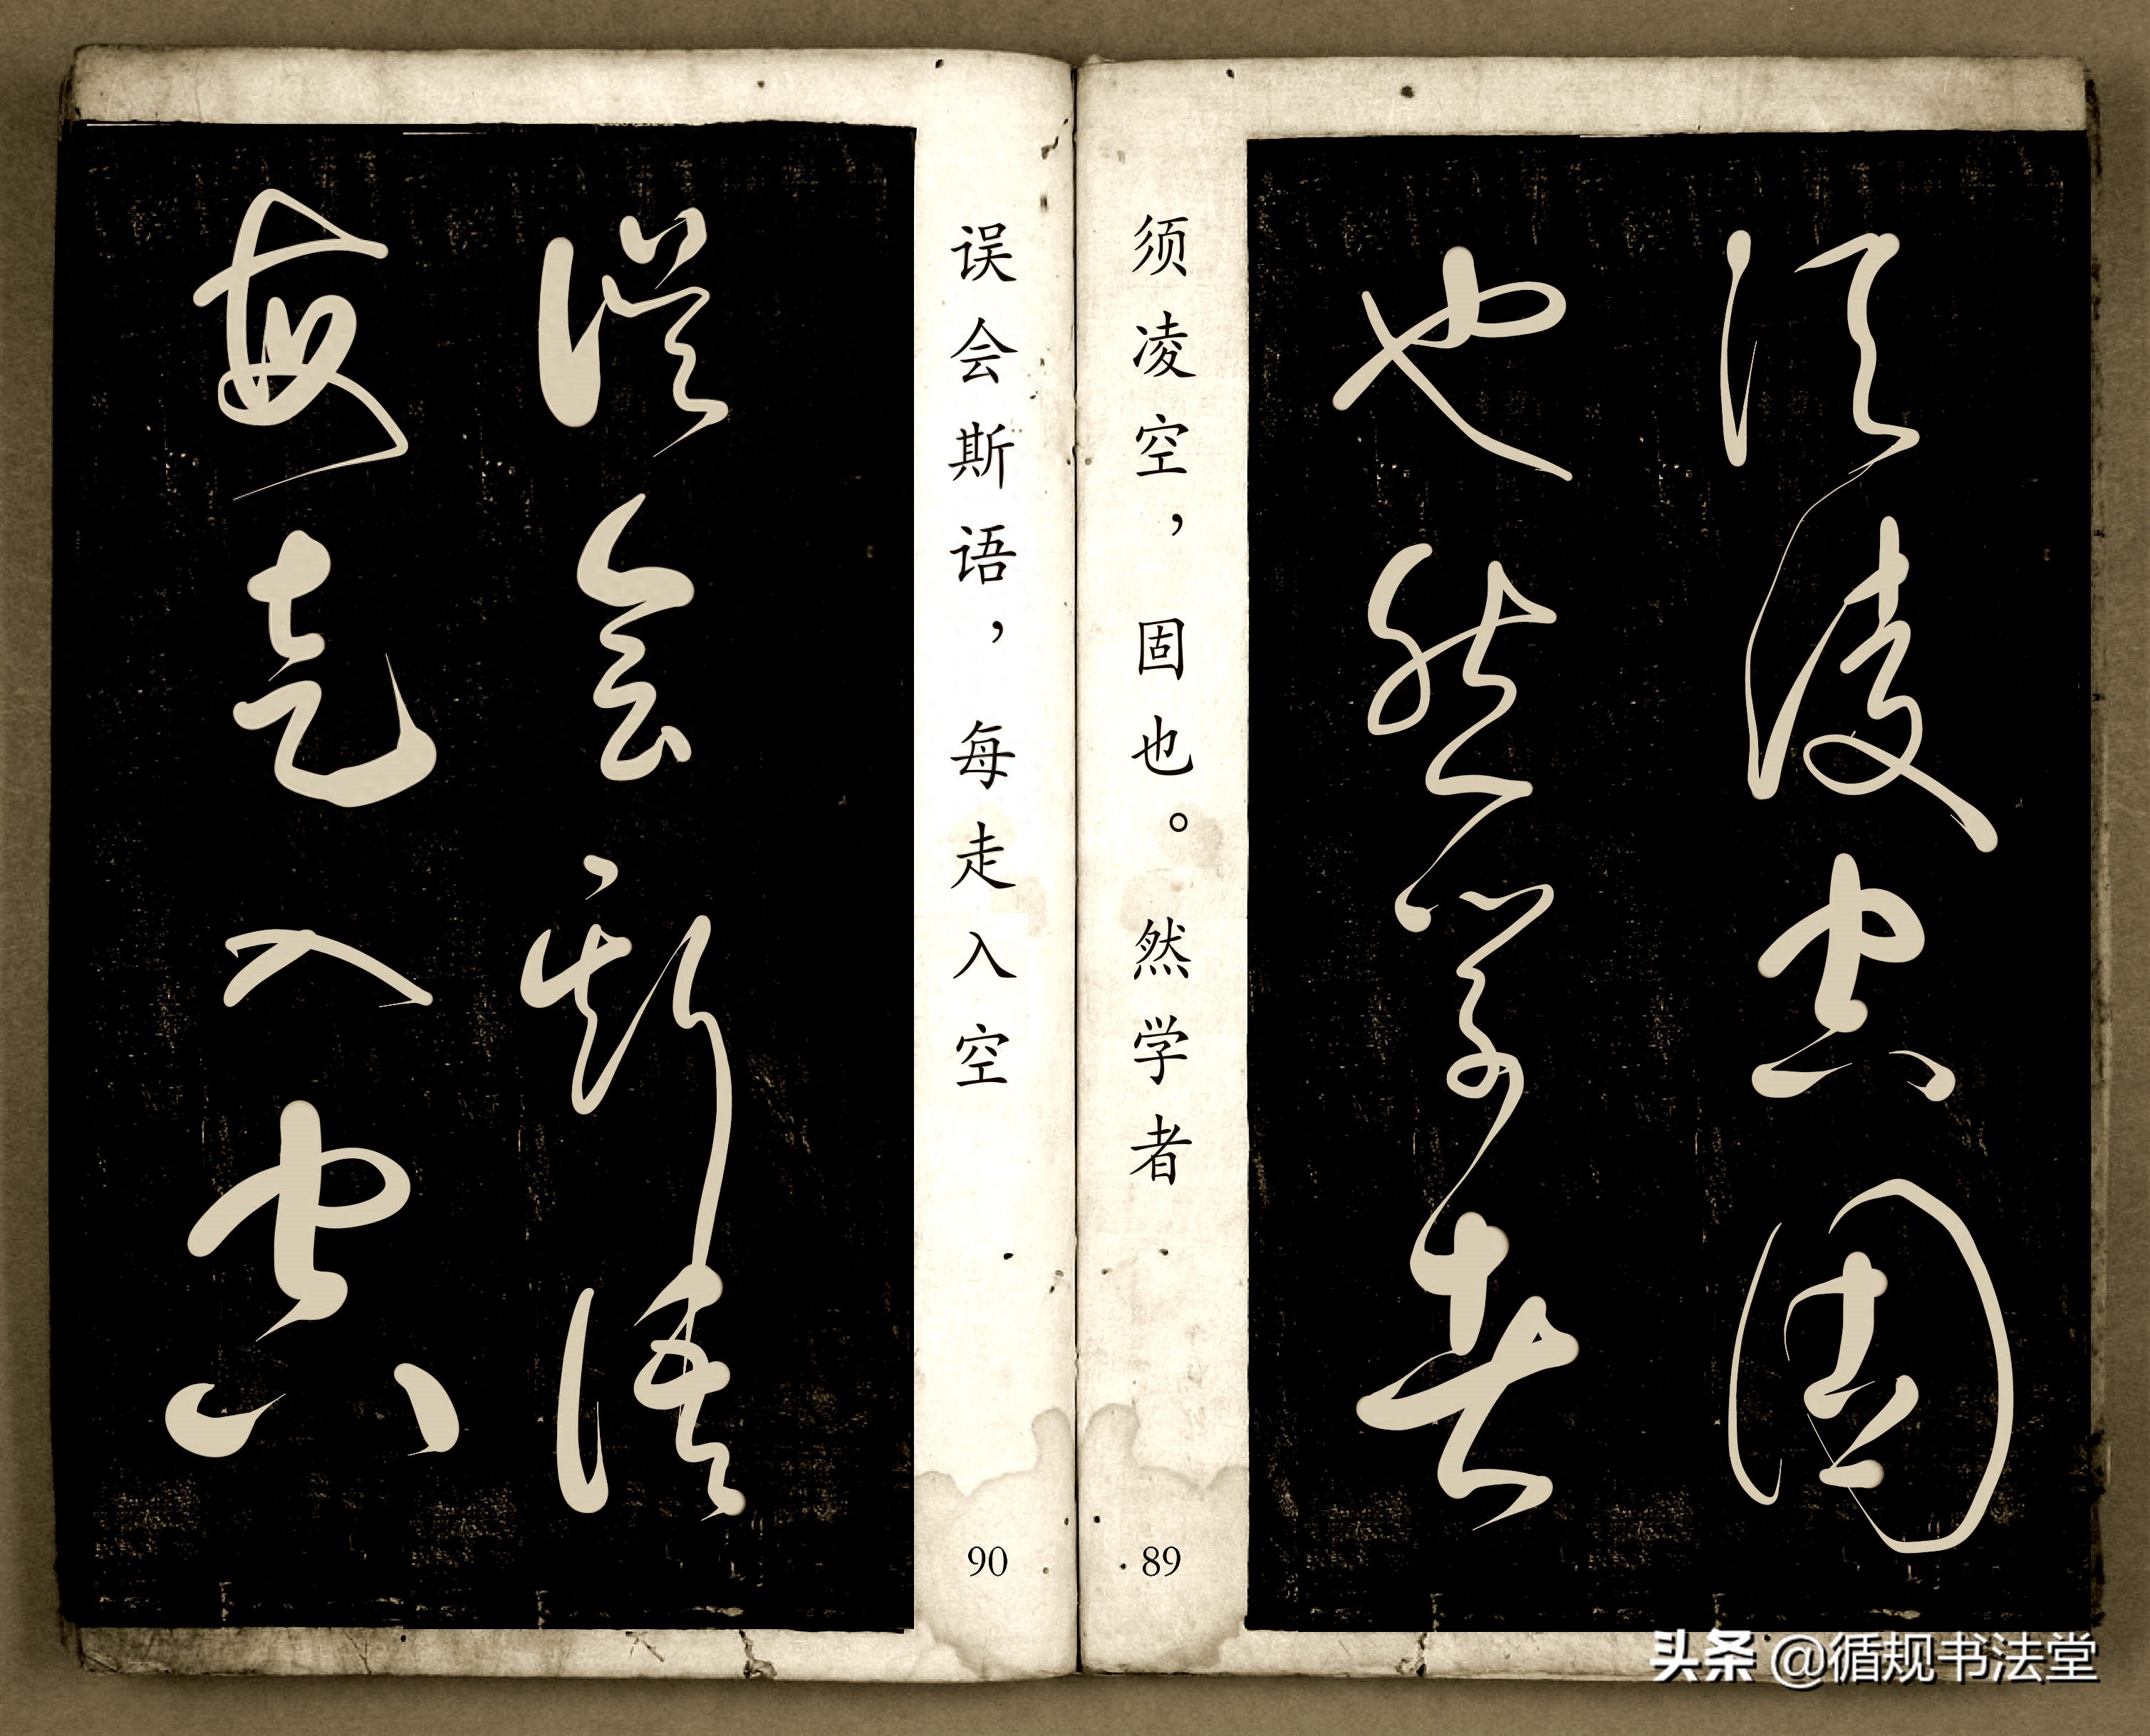 须凌空固
也然学者
须凌空，固也。然学者
89
误会斯语
每走入空
误会斯语，每走入空
90
头条 @循规书法堂